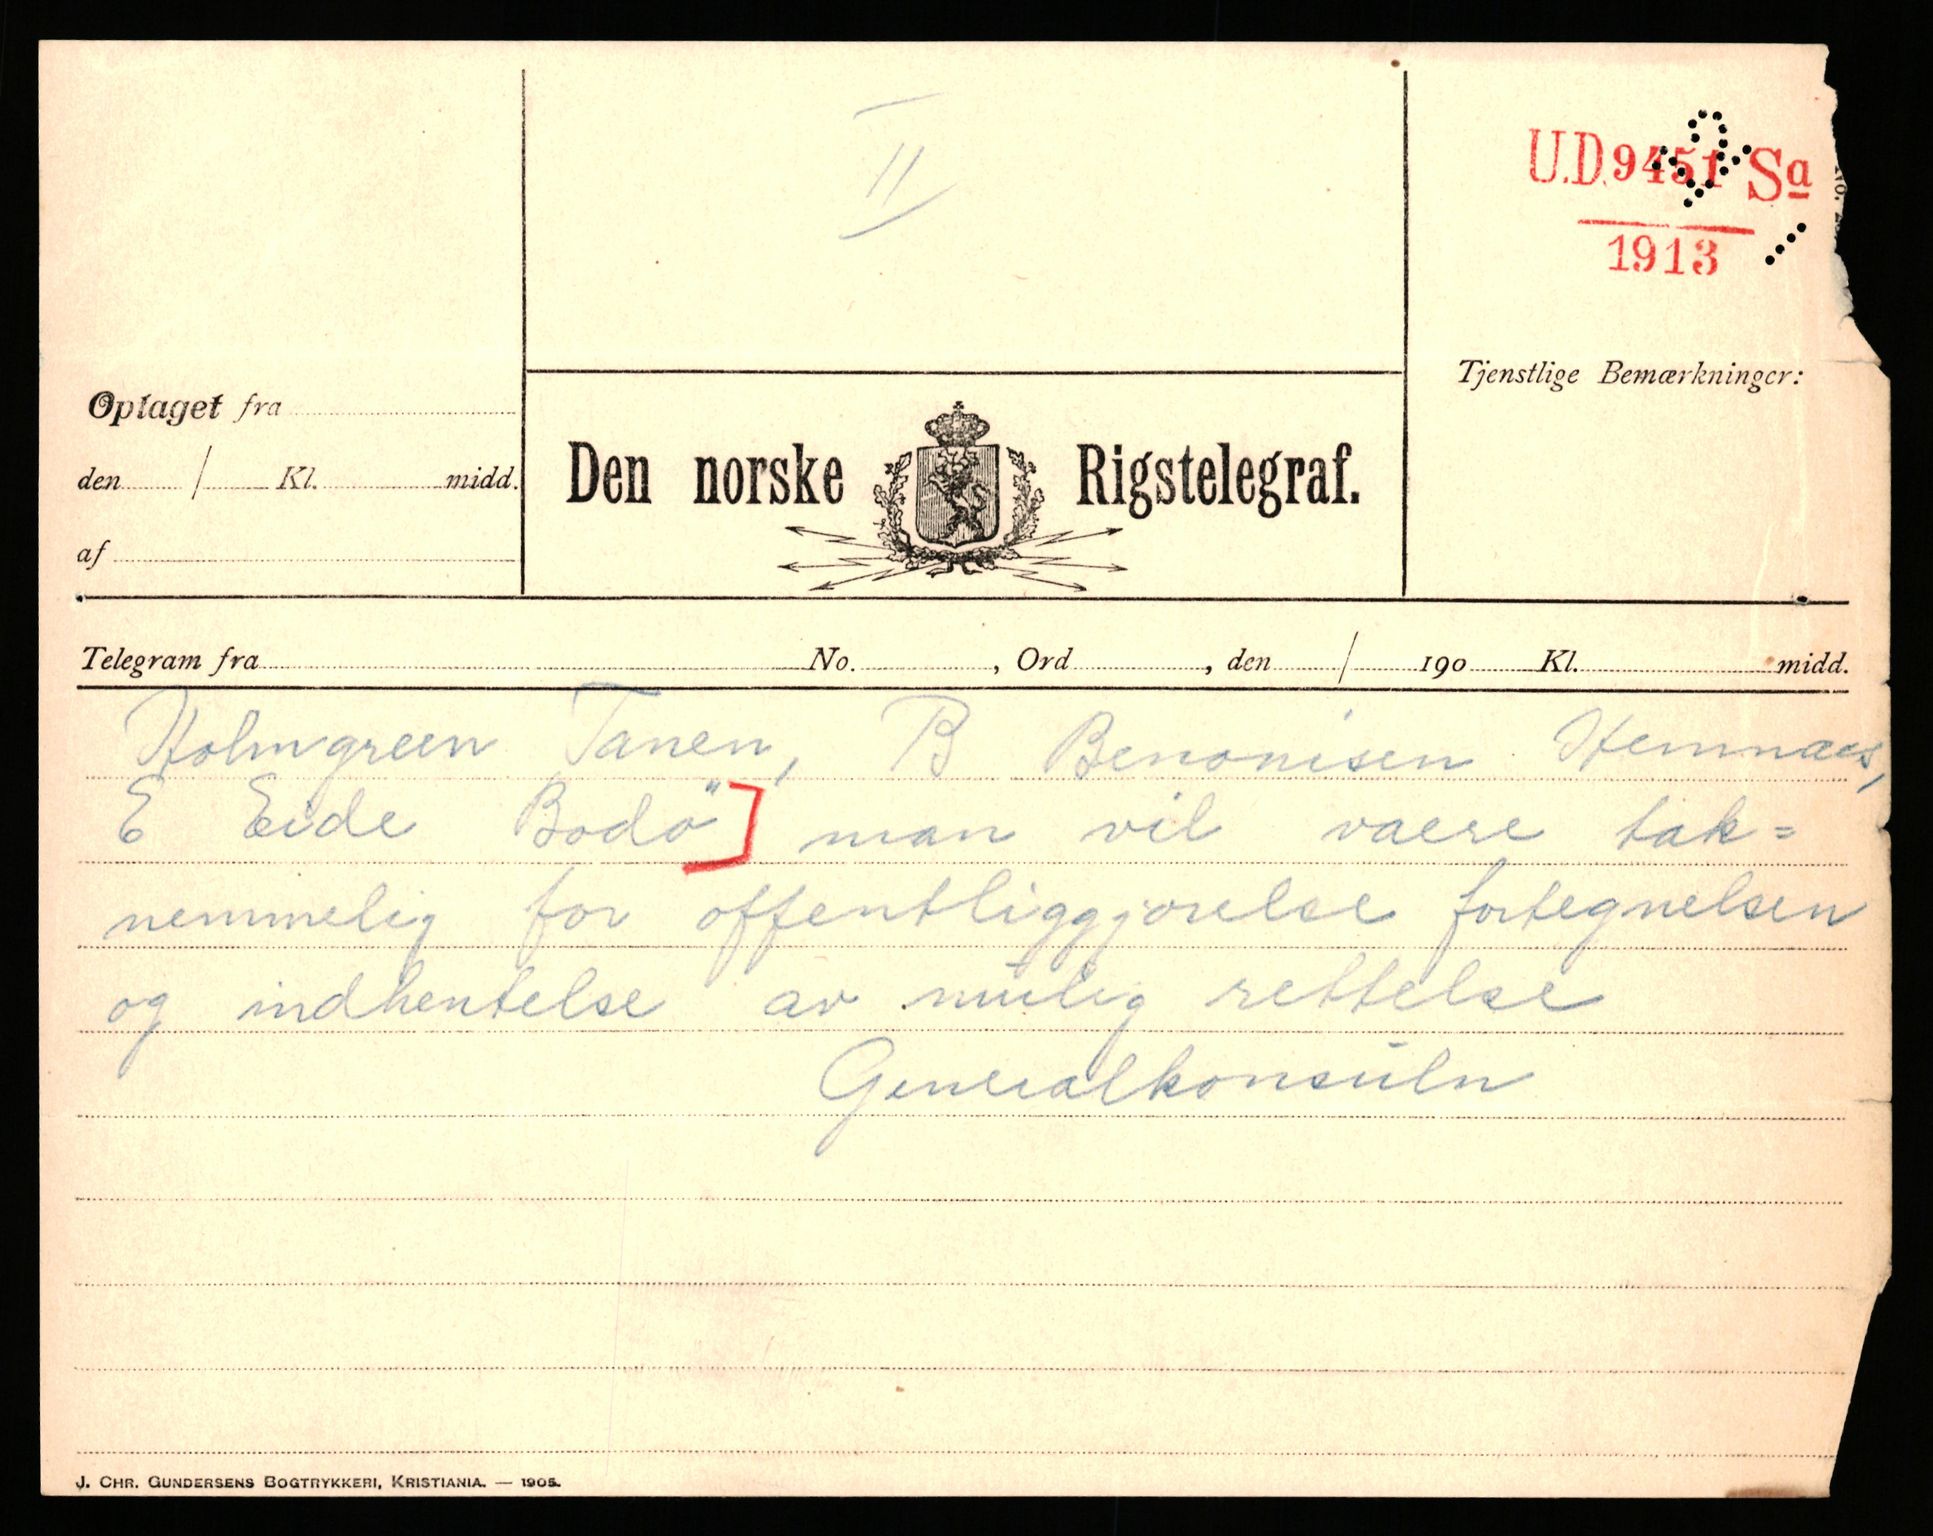 II
U.D. 9451 Sa
1913
Optaget fra
den / Kl. midd.
af
Den norske Rigstelegraf.
Tjenstlige Bemærkninger:
Telegram fra No. , Ord , den / 190 Kl. midd.
Holmgreen Tanen, B Benonisen Hemnaes,
E Eide Bodö] man vil vaere tak=
nemmelig for offentliggjorelse fortegnelsen
og indhentelse av mulig rettelse
Generalkonsuln
J. CHR. GUNDERSENS BOGTRYKKERI, KRISTIANIA. — 1905.